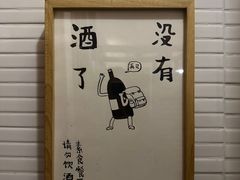 没有
酒了
再见
素食餐
请勿饮酒